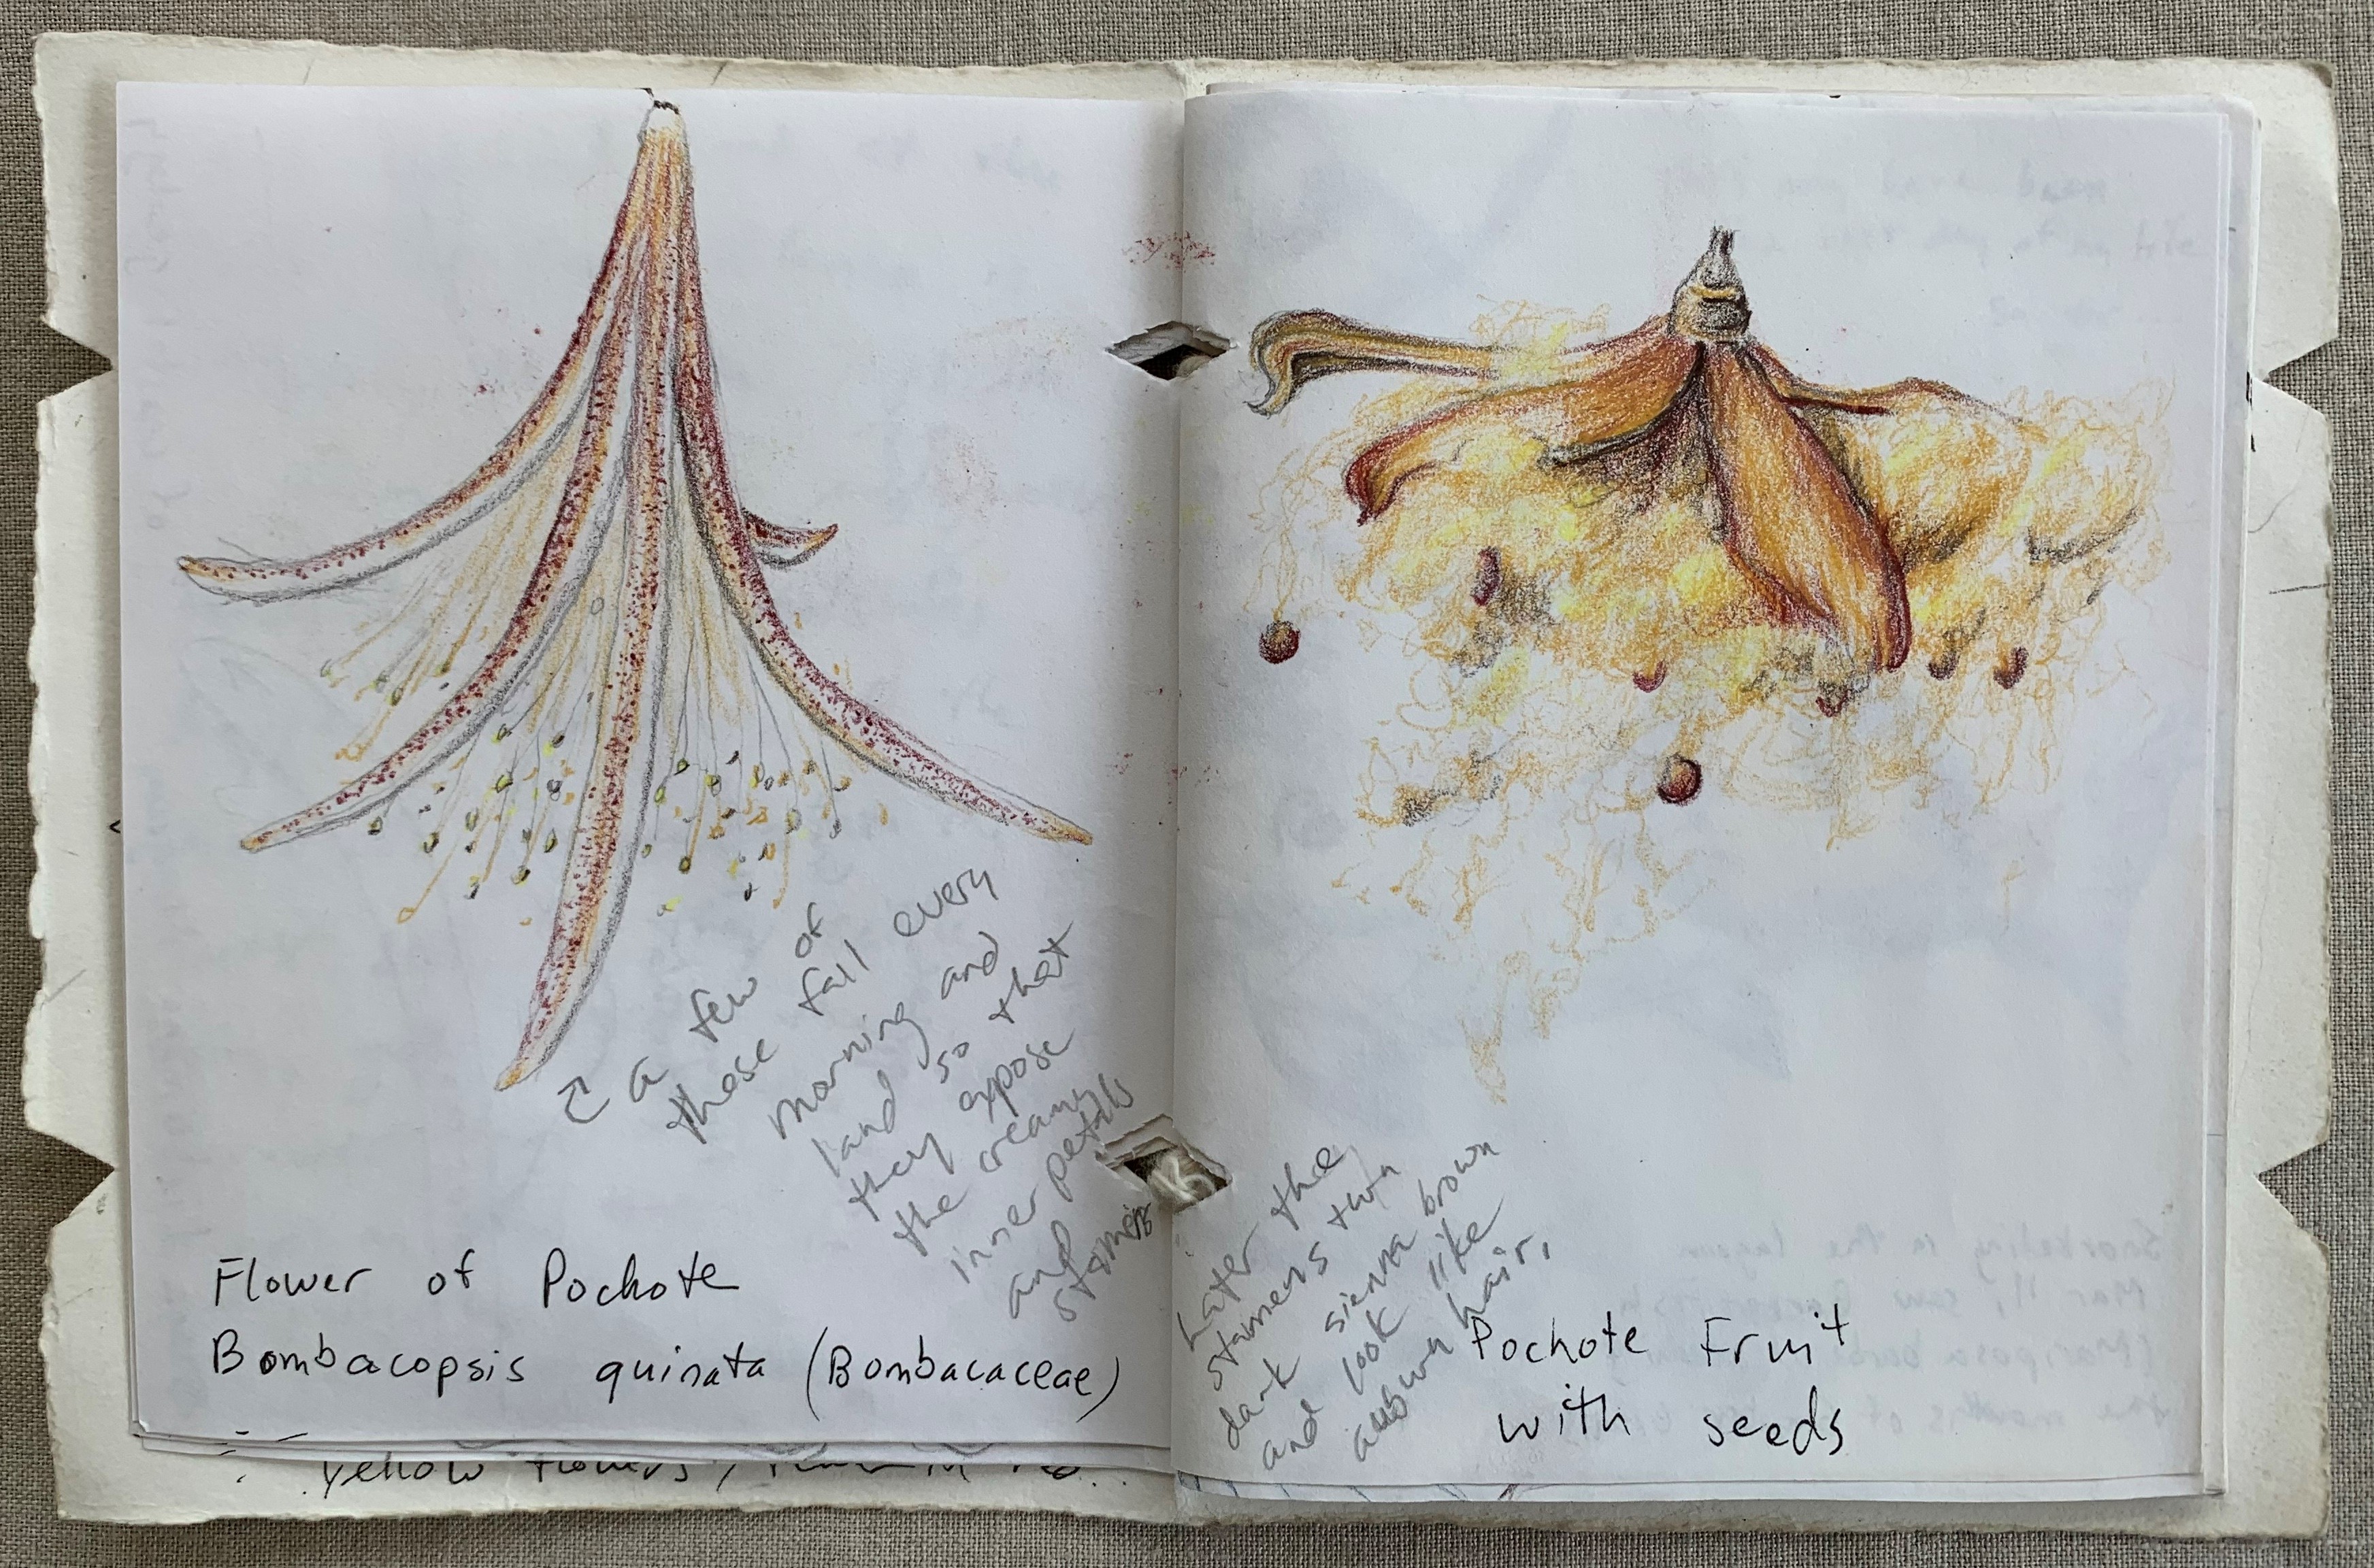 a few of
these fall every
morning and
land so that
they expose
the creamy
inner petals
and
stamens
Flower of Pochote
Bombacopsis quinata (Bombacaceae)
yellow flowers,
Later the
stamens turn
dark sienna brown
and look like
auburn hair.
Pochote Fruit
with seeds